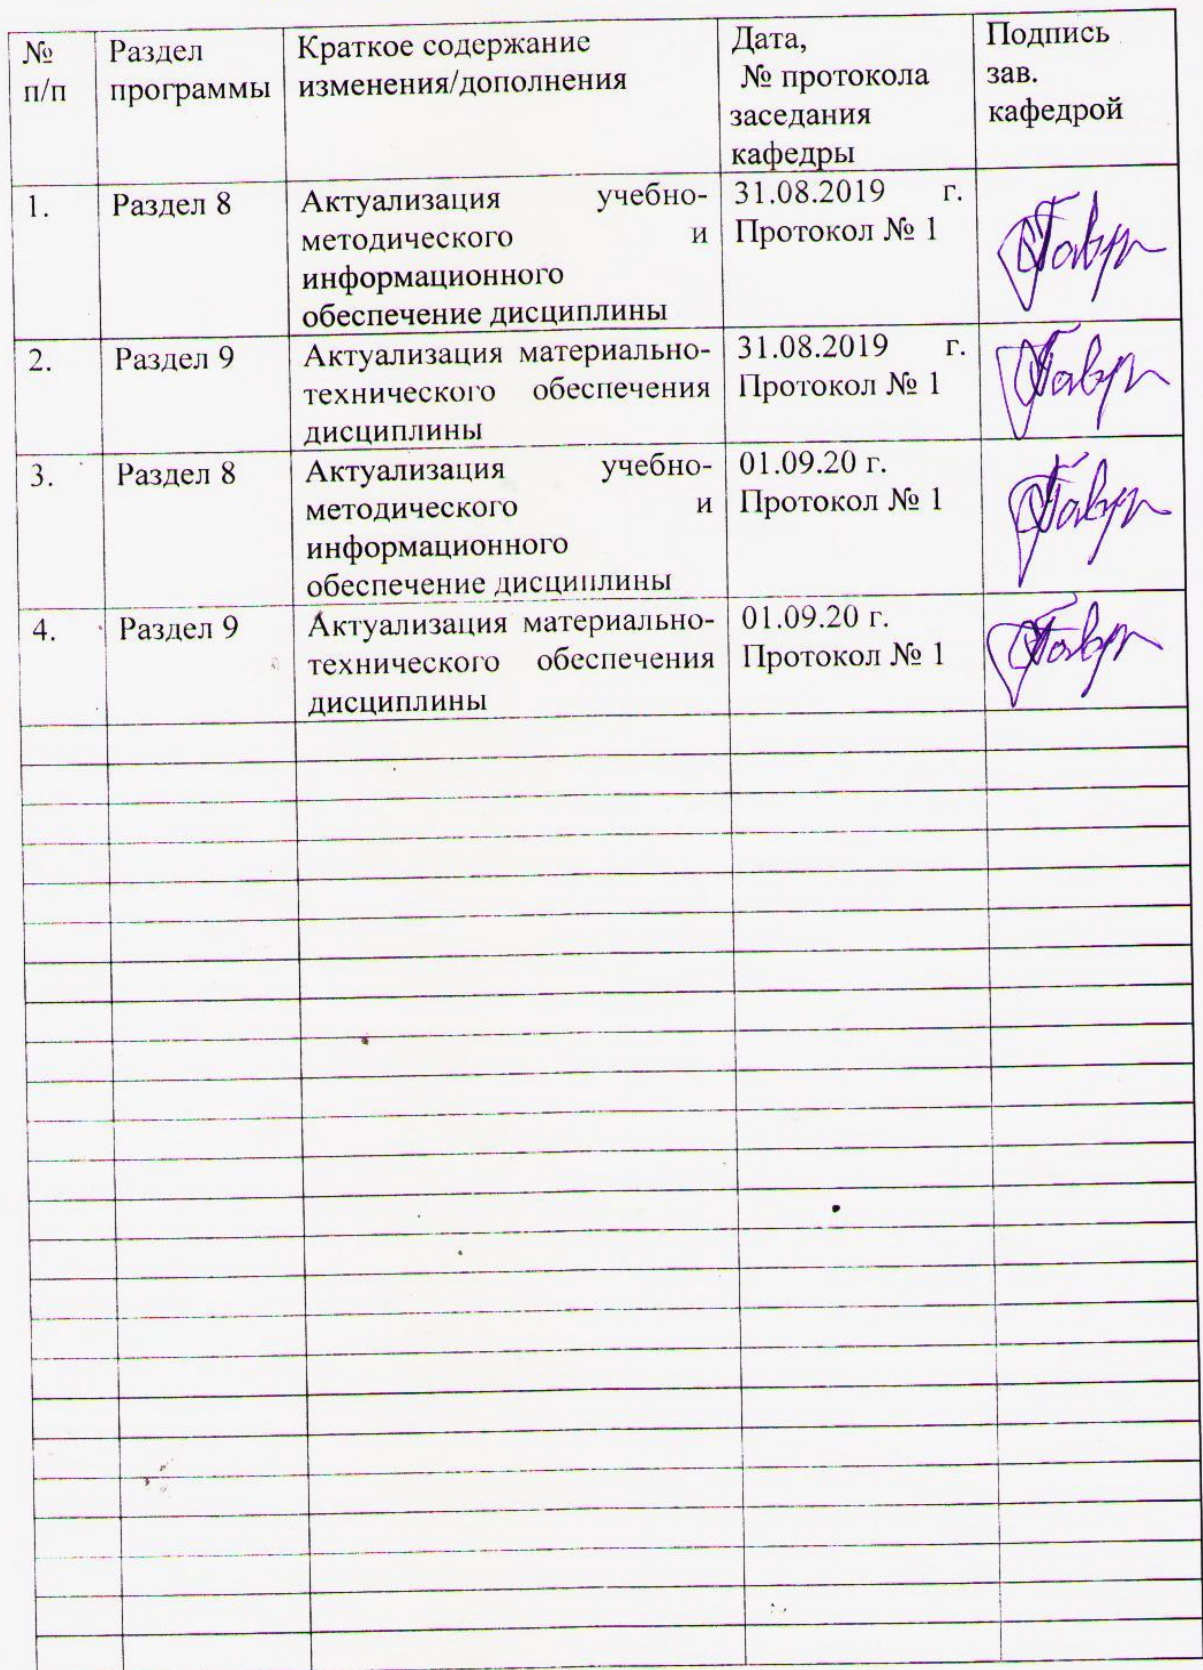 № п/п
Раздел программы
Краткое содержание
изменения/дополнения
Дата,
№ протокола
заседания
кафедры
Подпись
зав.
кафедрой
1.
Раздел 8
Актуализация учебно-
методического и
информационного
обеспечение дисциплины
31.08.2019 г.
Протокол № 1
2.
Раздел 9
Актуализация материально-
технического обеспечения
дисциплины
31.08.2019 г.
Протокол № 1
3.
Раздел 8
Актуализация учебно-
методического и
информационного
обеспечение дисциплины
01.09.20 г.
Протокол № 1
4.
Раздел 9
Актуализация материально-
технического обеспечения
дисциплины
01.09.20 г.
Протокол № 1